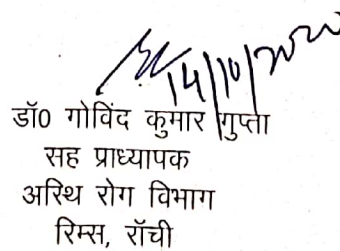 14/10/2020
डॉ0 गोविंद कुमार गुप्ता
सह प्राध्यापक
अस्थि रोग विभाग
रिम्स, राँची